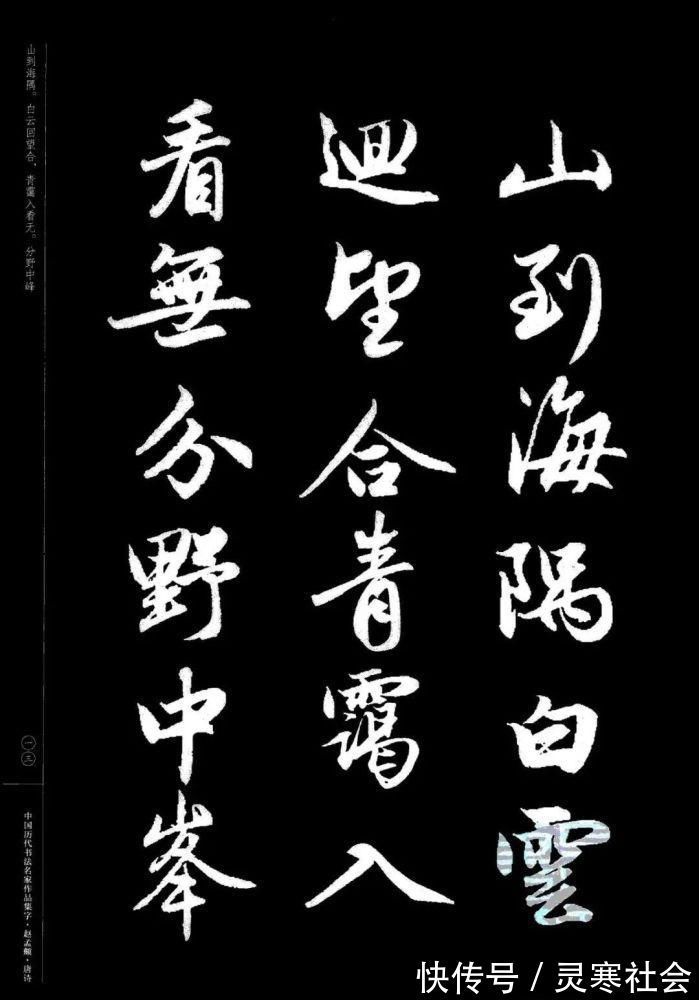 山到海隅白雲
迴望合青靄入
看無分野中峯
山到海隅。白云回望合，青霭入看无。分野中峰
一三
中国历代书法名家作品集字·赵孟頫·唐诗
快传号/灵寒社会